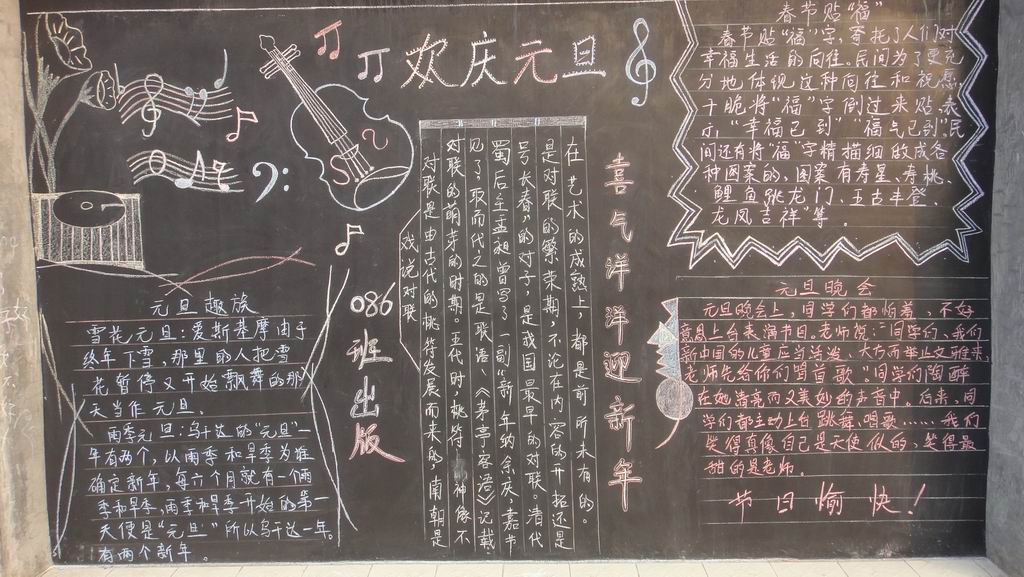 欢庆元旦
喜气洋洋迎新年
086班出版
元旦趣族
雪花元旦:爱斯基摩由于
终年下雪,那里的人把雪
花暂停又开始飘舞的那
天当作元旦.
雨季元旦:乌干达的“元旦”一
年有两个,以雨季和旱季为准
确定新年。每六个月就有一个雨
季和旱季,雨季和旱季开始的第一
天便是“元旦”所以乌干达一年
有两个新年。
戏说对联
对联是由古代的桃符发展而来的,南朝是
对联的萌芽的时期。五代时,桃符神像不
见了,取而代之的是联语、《茅亭客语》记载
蜀后主孟昶曾写了一副“新年纳余庆,嘉节
号长春”的对子,是我国最早的对联。清代
是对联的繁荣期,不论在内容的开拓还是
在艺术的成熟上,都是前所未有的。
春节贴“福”
春节贴“福”字,寄托了人们对
幸福生活的向往。民间为了更充
分地体现这种向往和祝愿,
干脆将“福”字倒过来贴,表
示,“幸福已到”“福气已到”民
间还有将“福”字精描细做成各
种图案的,图案有寿星、寿桃、
鲤鱼跳龙门、五谷丰登、
龙凤吉祥”等.
元旦晚会
元旦晚会上,同学们都怕羞、不好
意思上台来演节目。老师说:“同学们、我们
新中国的儿童应当活泼、大方而举止文雅来,
老师先给你们唱首歌。”同学们陶醉
在她清亮而又美妙的声音中。后来,同
学们都主动上台跳舞、唱歌……我们
笑得真像自己是天使似的、笑得最
甜的是老师.
节日愉快!